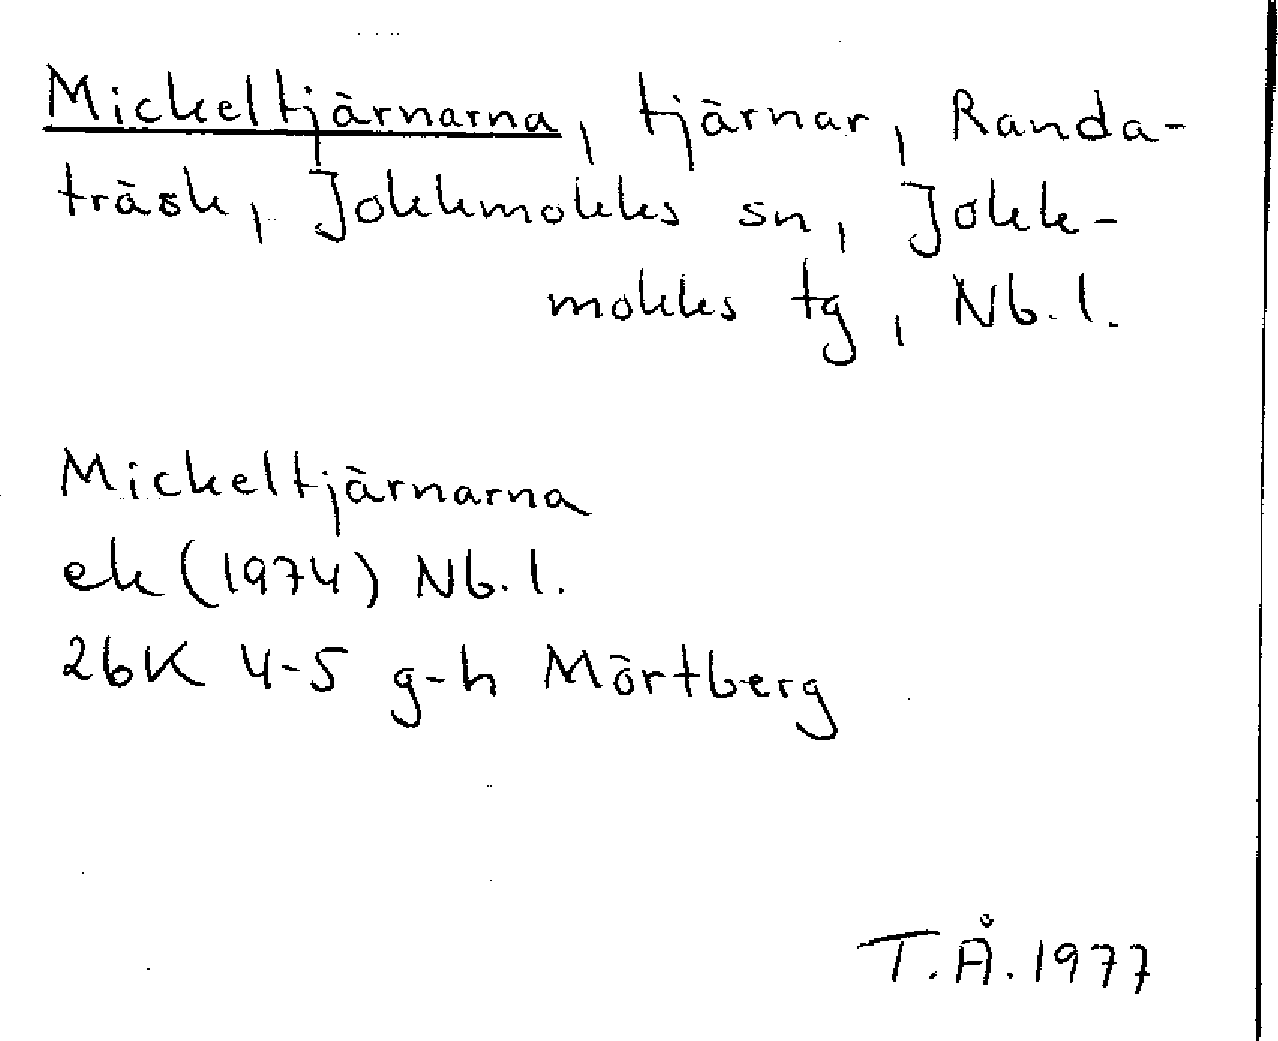 Mickeltjärnarna, tjärnar, Randa-
träsk, Jokkmokks sn, Jokk-
mokks tg, Nb. l.
Mickeltjärnarna
ek (1974) Nb. l.
26K 4-5 g-h Mörtberg
T.Å. 1977